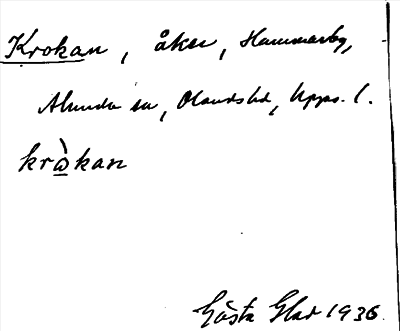 Krokan, åker, Hammarby,
Alunda sn, Olandshd, Upps. l.
krὼkan
Gösta Glad 1936.